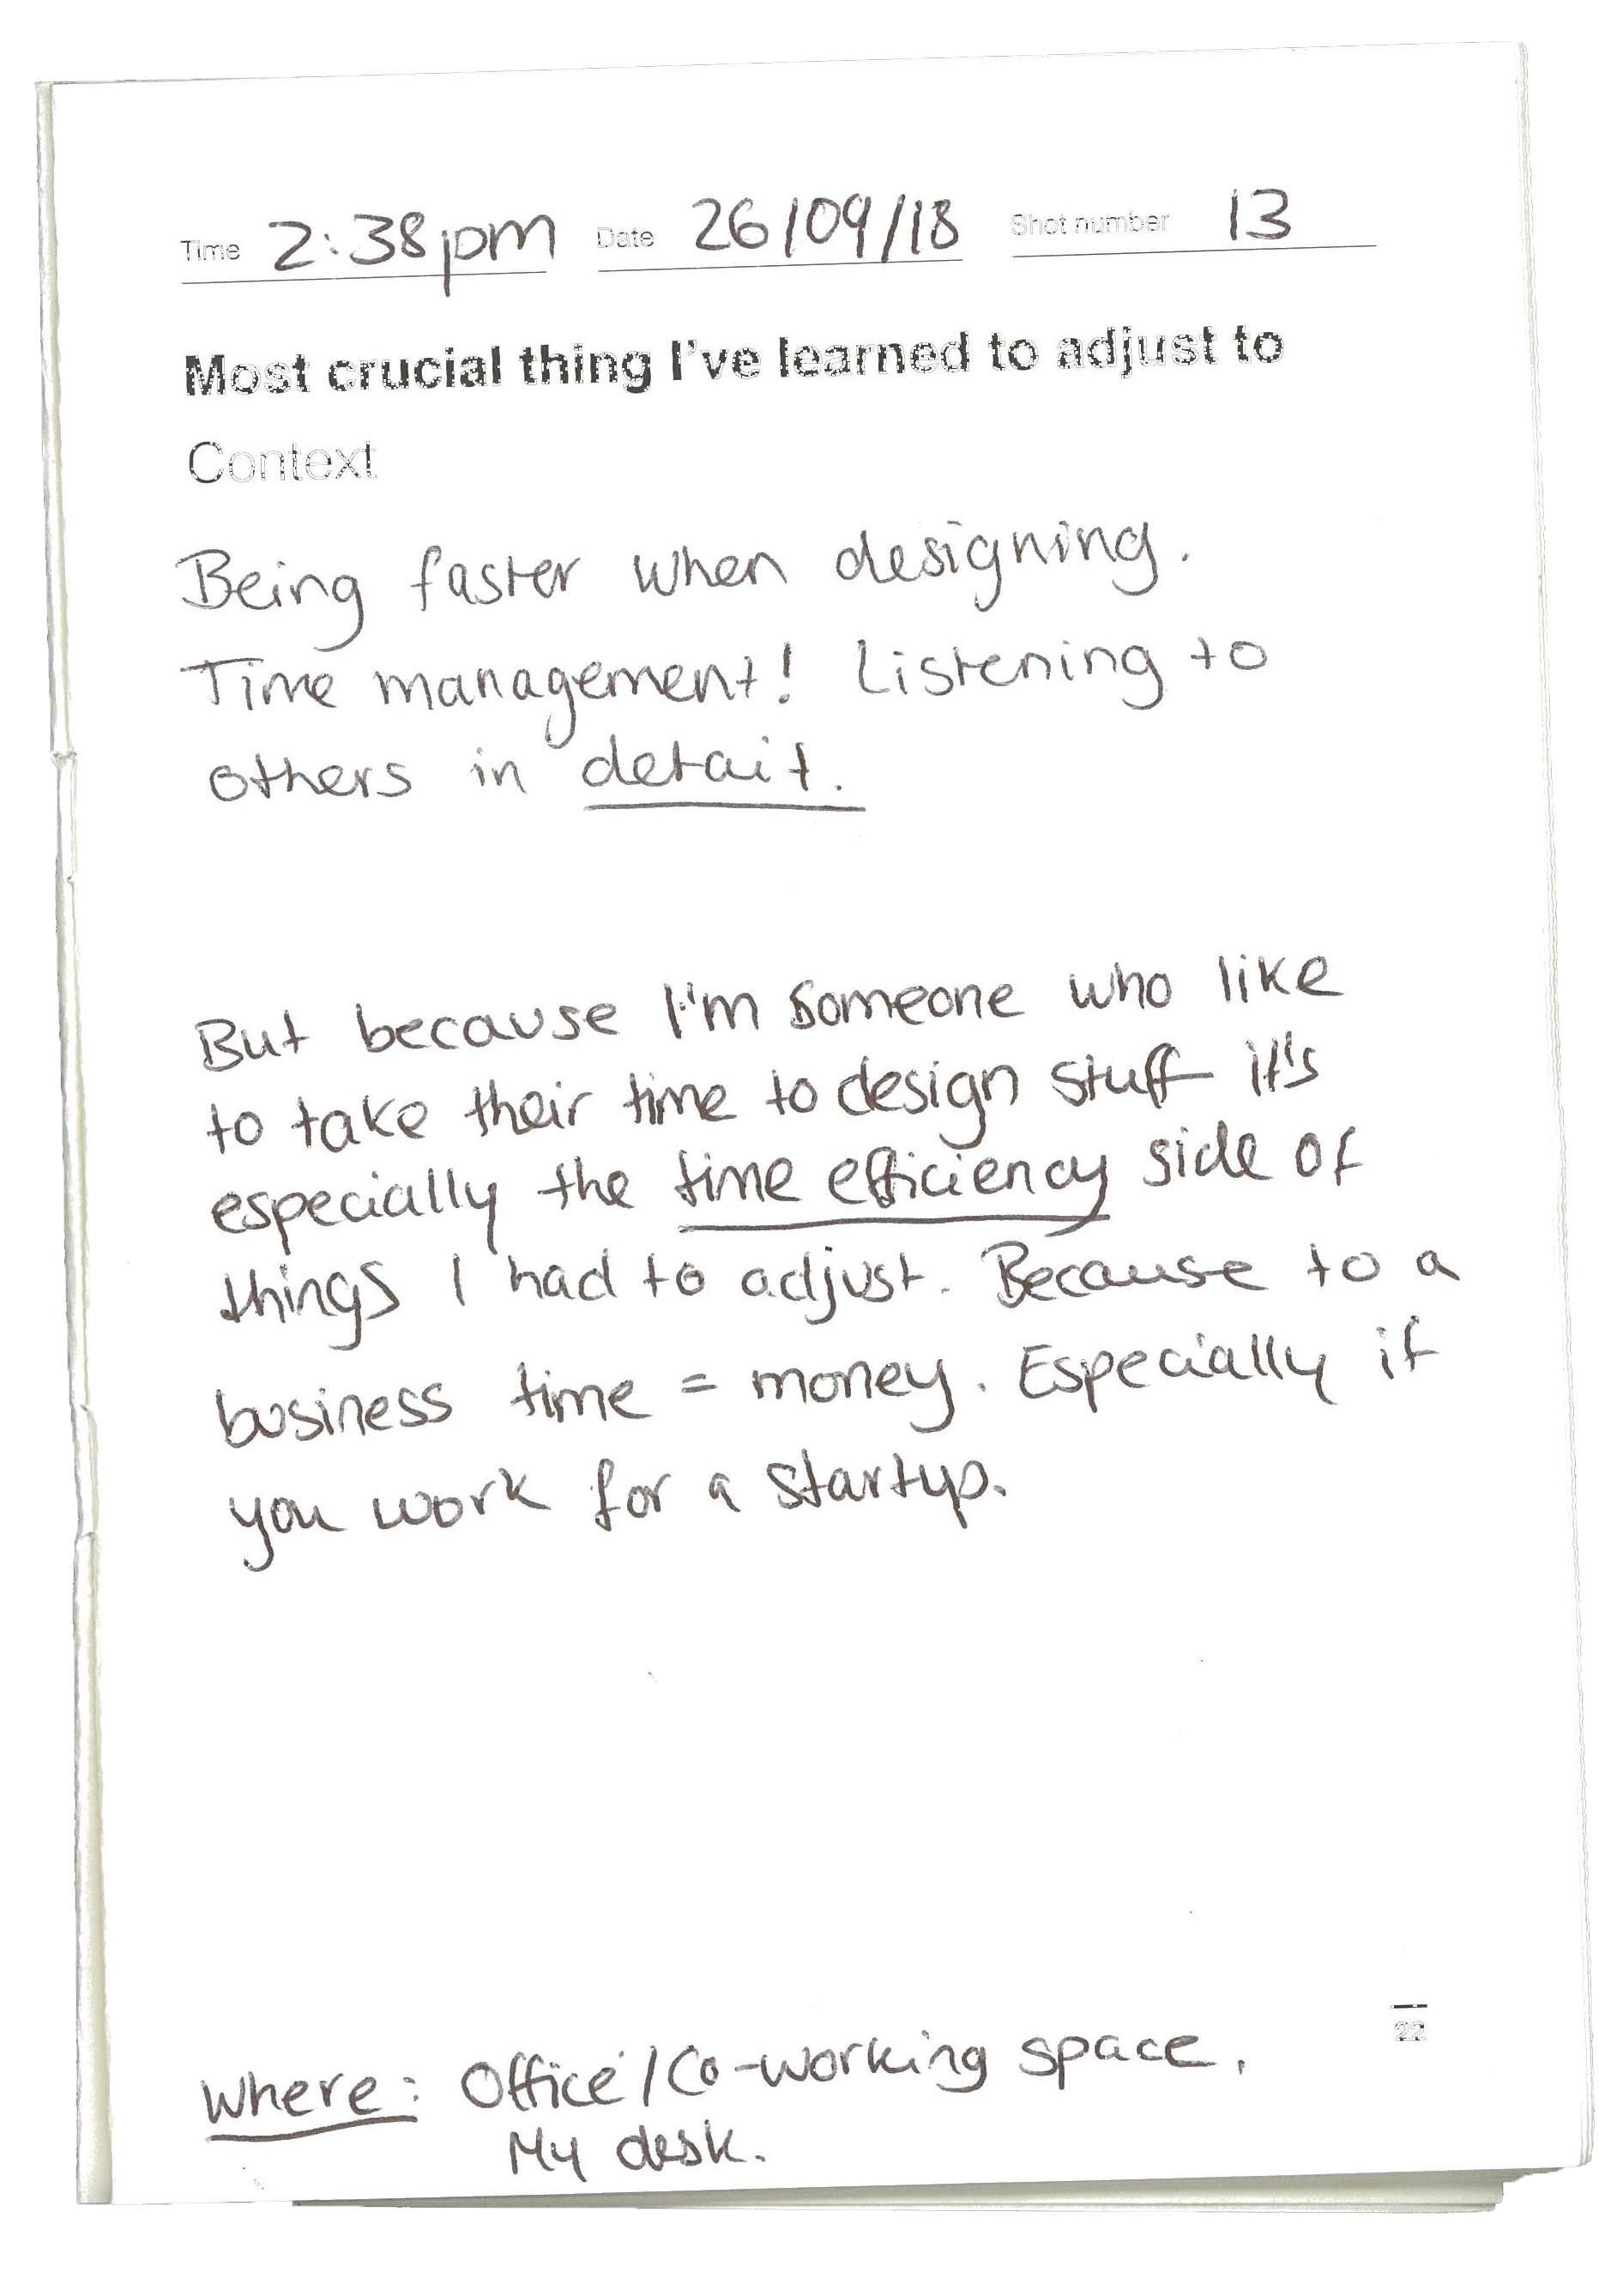 Time 2:38pm Date 26/09/18 Shot number 13
Most crucial thing I've learned to adjust to
Context
Being faster when designing.
Time management! Listening to
others in detail.
But because I'm someone who like
to take their time to design stuff it's
especially the time efficiency side of
things I had to adjust. Because to a
business time = money. Especially if
you work for a startup.
22
Where: Office/Co-working space,
My desk.